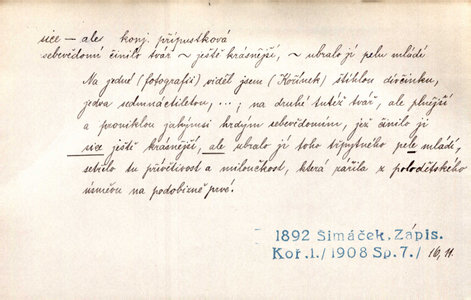 sice — ale konj. přípustková
sebevědomí činilo tvář ~ ještě krásnější, ~ ubralo jí pelu mládí
Na jedné (fotografii) viděl jsem (Kořínek) štíhlou dívčinku,
jedva sedmnáctiletou, ...; na druhé tutéž tvář, ale plnější
a proniklou jakýmsi hrdým sebevědomím, jež činilo ji
sice ještě krásnější, ale ubralo jí toho třpytného pele mládí,
setřelo tu přívětivost a miloučkost, která zářila z polodětského
úsměvu na podobizně prvé.
1892 Šimáček, Zápis.
Koř.1./1908 Sp.7./ 16, 11